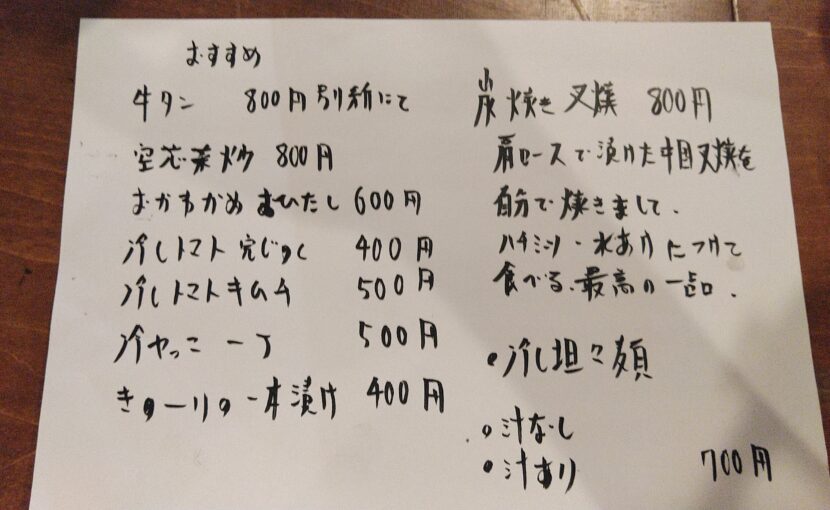 おすすめ
牛タン 800円 別紙にて
空芯菜炒 800円
おかわかめ おひたし 600円
冷しトマト 完じゅく 400円
冷しトマトキムチ 500円
冷やっこ 一丁 500円
きゅーりの一本漬け 400円
炭焼き叉焼 800円
肩ロースで漬けた中国叉焼を
自分で焼きまして、
ハチミツ・水あめにつけて
食べる、最高の一品。
・冷し坦々麺
・汁なし
・汁あり 700円